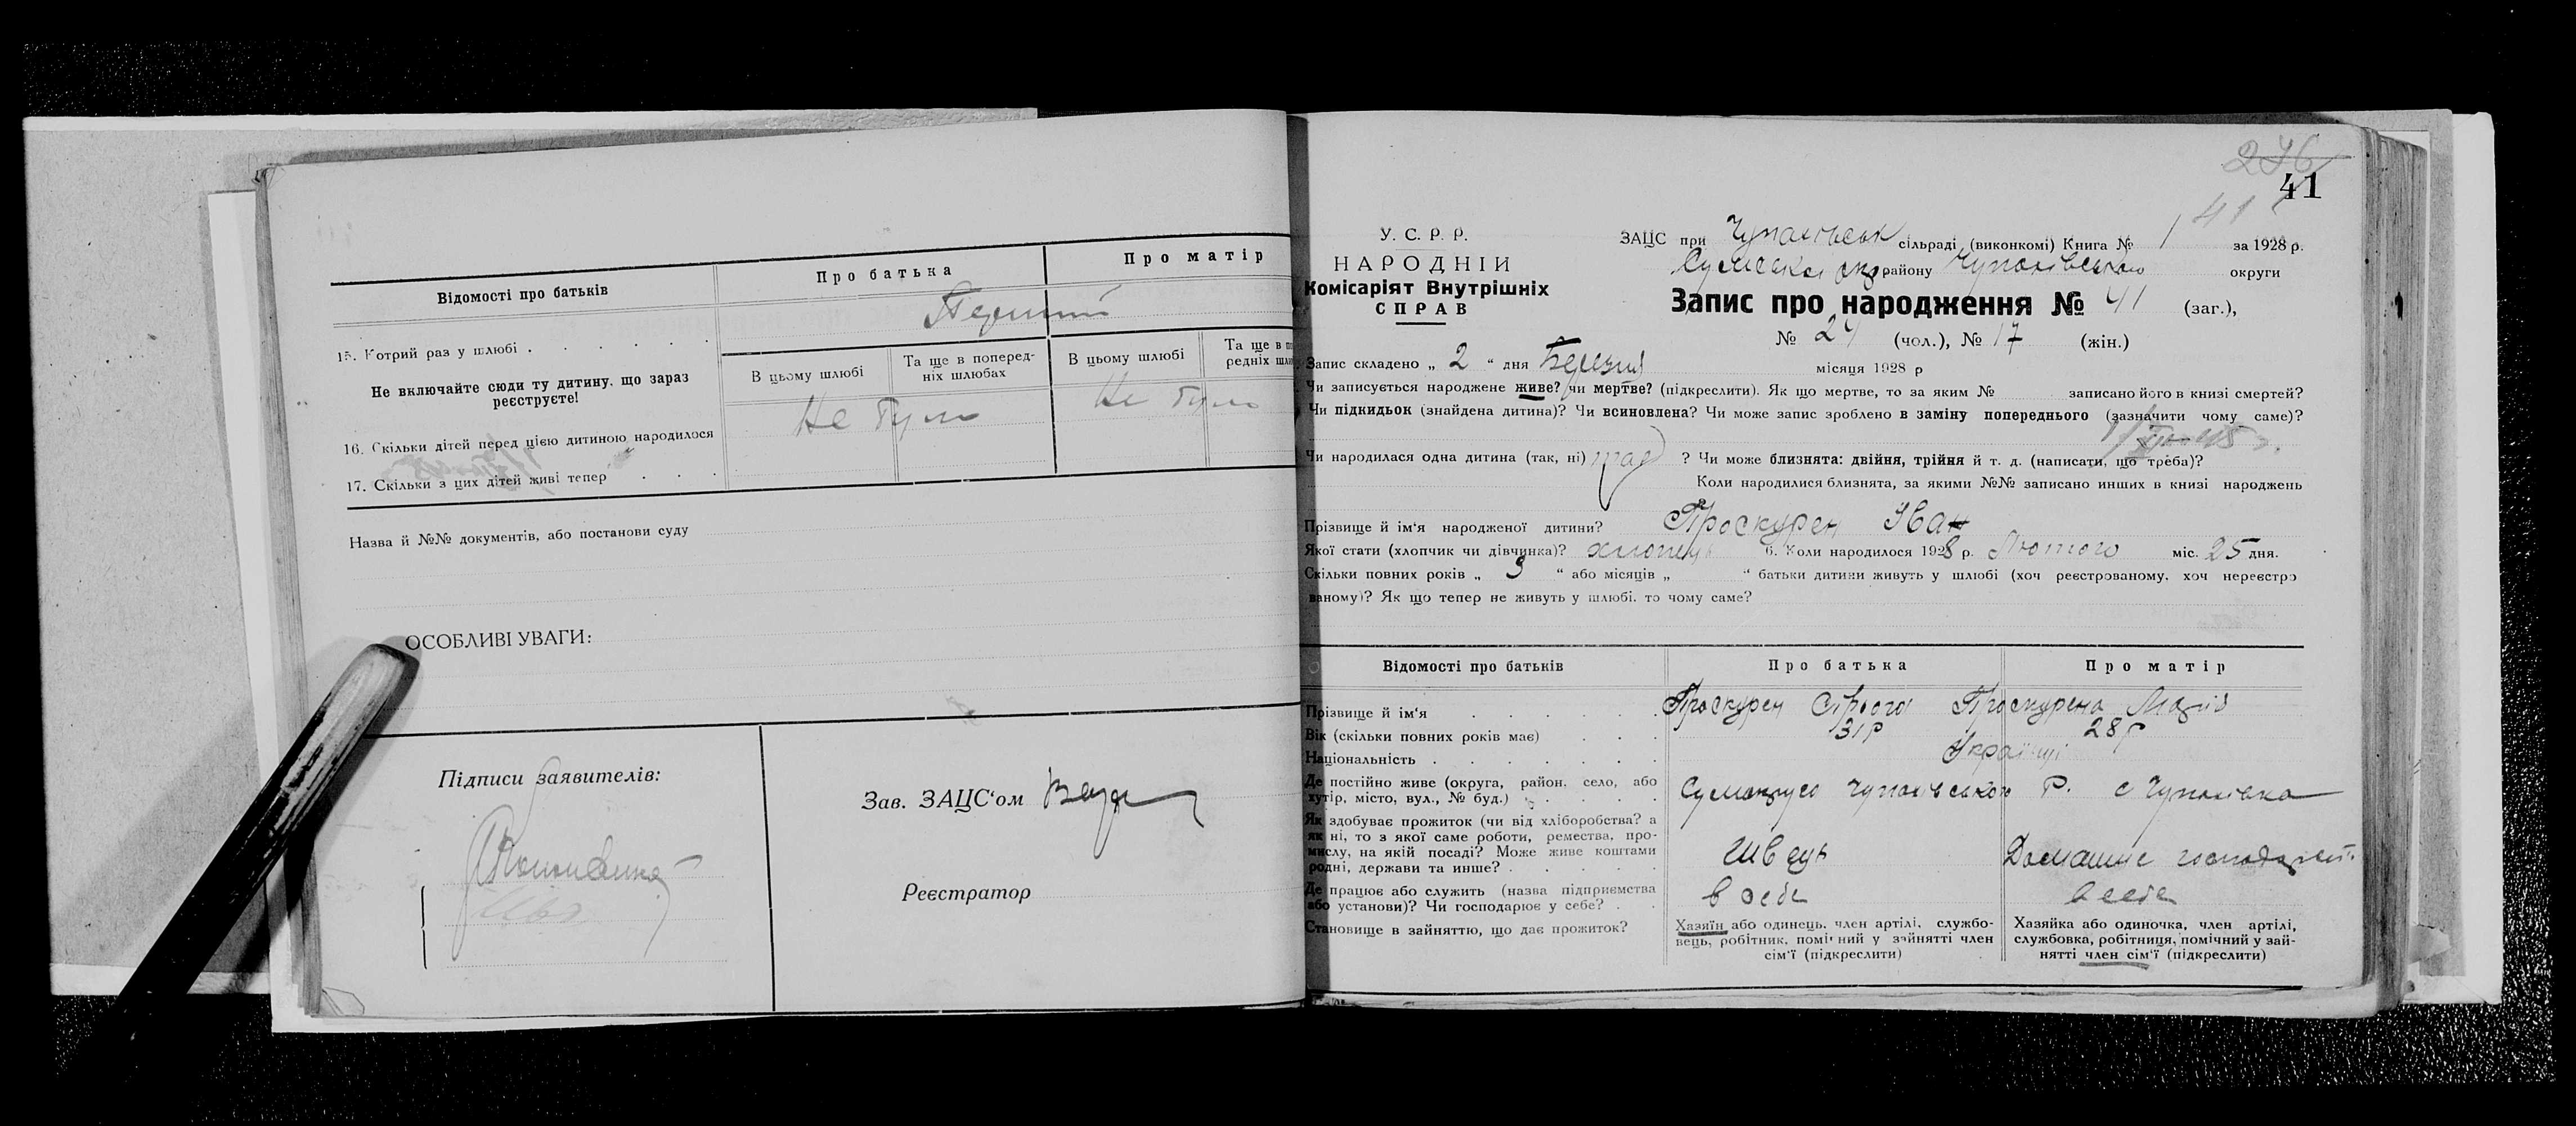 Відомості про батьків
Про батька
Про матір
15. Котрий раз у шлюбі
Перший
Не включайте сюди ту дитину, що зараз реєструєте!
В цьому шлюбі
Та ще в поперед-
ніх шлюбах
В цьому шлюбі
Та ще в по
редніх шлю
16. Скільки дітей перед цією дитиною народилося
Не було
Не було
17. Скільки з цих дітей живі тепер
Назва й №№ документів, або постанови суду
ОСОБЛИВІ УВАГИ:
Підписи заявителів:
Зав. ЗАЦС'ом
Реєстратор
276
41
41
У. С. Р. Р.
НАРОДНІЙ
Комісаріят Внутрішніх
СПРАВ
ЗАЦС при Чупахівськ сільраді (виконкомі) Книга № 1 за 1928 р.
району Чупахівського округи
Запис про народження № 41 (заг.),
№ 24 (чол.), № 17 (жін.)
Запис складено „ 2 “ дня Березня місяця 1928 р
Чи записується народжене живе? чи мертве? (підкреслити). Як що мертве, то за яким № записано його в книзі смертей?
Чи підкидьок (знайдена дитина)? Чи всиновлена? Чи може запис зроблено в заміну попереднього (зазначити чому саме)?
Чи народилася одна дитина (так, ні) ? Чи може близнята: двійня, трійня й т. д. (написати, що треба)?
Коли народилися близнята, за якими №№ записано инших в книзі народжень
Прізвище й ім'я народженої дитини? Проскурен Іван
Якої стати (хлопчик чи дівчинка)? хлопець 6. Коли народилося 1928 р. Лютого міс. 25 дня.
Скільки повних років „ 3 “ або місяців „ “ батьки дитини живуть у шлюбі (хоч реєстрованому, хоч нереєстро
ваному)? Як що тепер не живуть у шлюбі, то чому саме?
Відомості про батьків
Про батька
Про матір
Прізвище й ім'я
Проскурен
Проскурена Марія
Вік (скільки повних років має)
31 р
28 р
Національність
Українці
Де постійно живе (округа, район, село, або
хутір, місто, вул., № буд.)
Чупахівського Р. с Чупахівка
Як здобуває прожиток (чи від хліборобства? а
як ні, то з якої саме роботи, ремества, про-
мислу, на якій посаді? Може живе коштами
родні, держави та инше?
Шведь
Домашне господарст.
Де працює або служить (назва підприємства
або установи)? Чи господарює у себе?
в себе
в себе
Становище в зайняттю, що дає прожиток?
Хазяїн або одинець, член артілі, службо-
вець, робітник, помічний у зайнятті член
сім'ї (підкреслити)
Хазяйка або одиночка, член артілі,
службовка, робітниця, помічний у зай-
нятті член сім'ї (підкреслити)